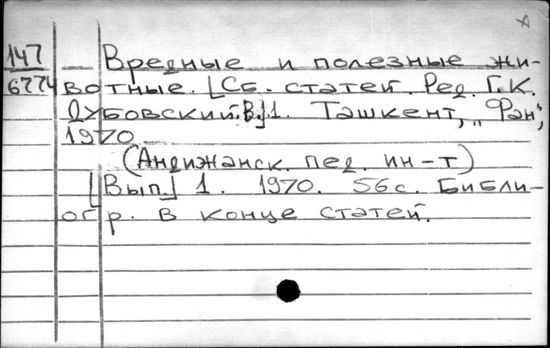 147
6774
Вредные и полезные жи-
вотные. [Сб. статей. Ред. Г. К.
Дубовский. В.] 1. Ташкент, „Фан",
1970
(Андижанск. пед. ин-т)
[Вып.] 1. 1970. 56 с. Библи-
огр. в конце статей.